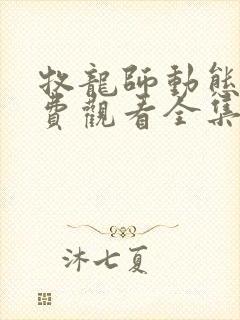 牧龍師動態
費觀看全集
沐七夏